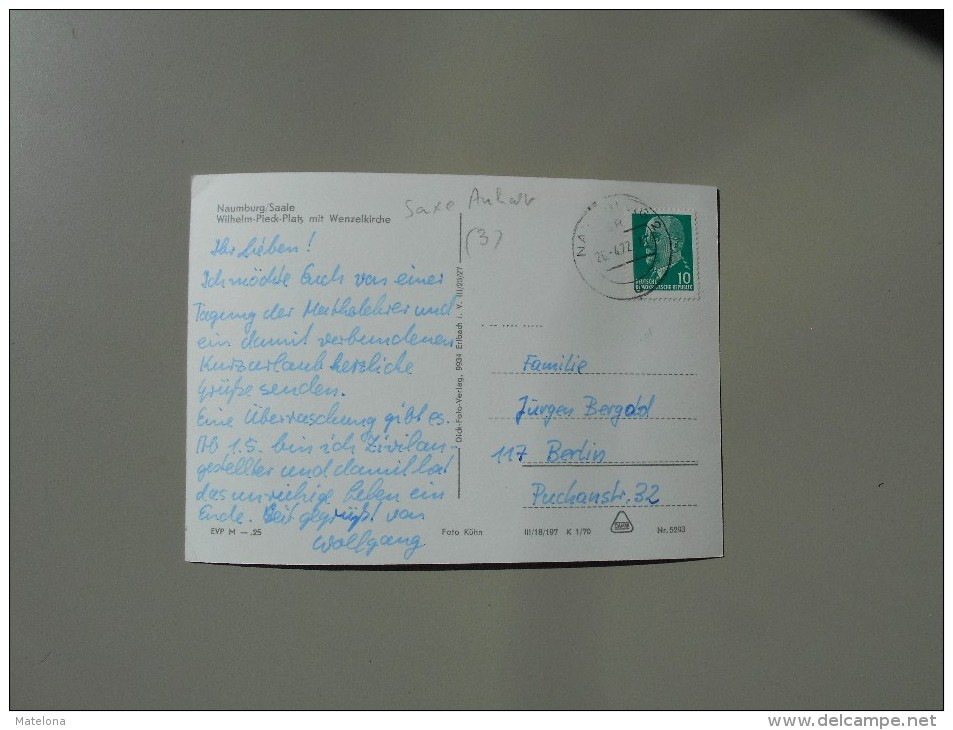 Naumburg/Saale
Wilhelm-Pieck-Platz mit Wenzelkirche
Saxe Anhalt
(3)
Ihr Lieben!
Ich möchte Euch von einer
Tagung der Mathelehrer und
ein damit verbundenen
Kurzurlaub herzliche
Grüße senden.
Eine Überraschung gibt es.
Ab 1.5. bin ich Zivilan-
gestellter und damit hat
das unruhige Leben ein
Ende. Seit gegrüßt von
Wolfgang
EVP M — .25
Foto Kühn
Dick-Foto-Verlag, 9934 Erlbach i. V. III/28/27
NA
4.72
DEUTSCHE
DEMOKRATISCHE REPUBLIK
10
Familie
Jürgen Bergold
117 Berlin
Puchanstr. 32
III/18/197 K 1/70
Nr. 5293
Matelona
www.delcampe.net